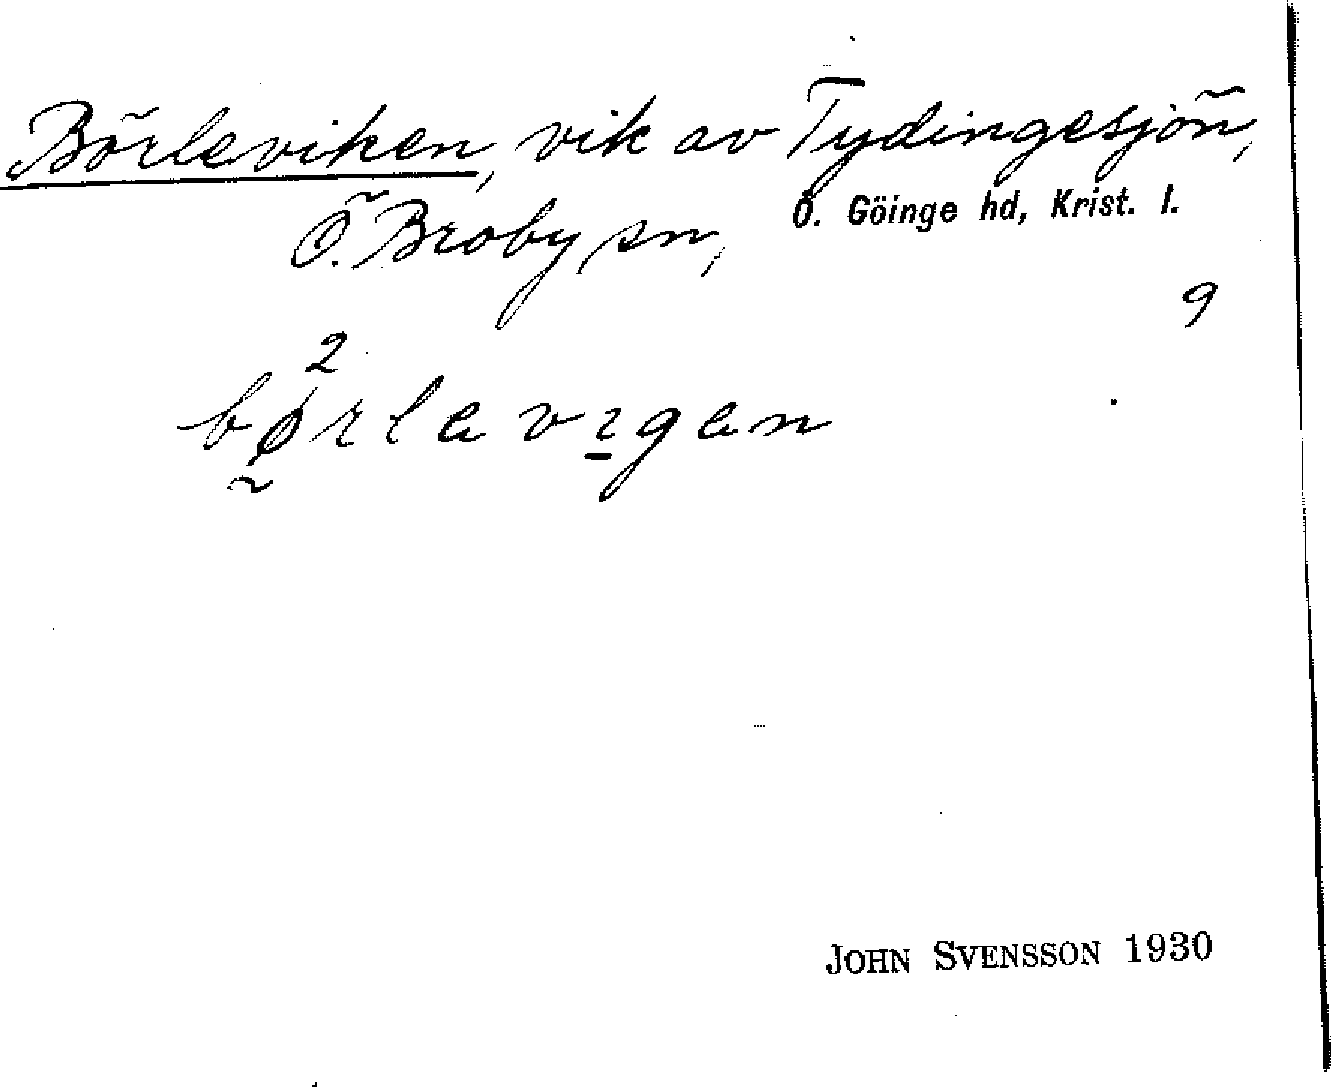 Börleviken, vik av Tydingesjön,
Ö. Broby sn, Ö. Göinge hd, Krist. l.
9
2
børlavigan
JOHN SVENSSON 1930